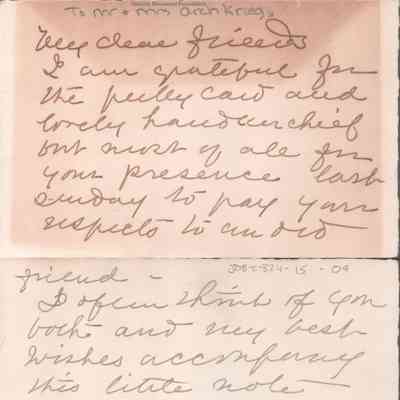 To Mr & Mrs Arch Krieg,
My dear friends
I am grateful for
the pretty card and
lovely handkerchief
but most of all for
your presence last
Sunday to pay your
respects to an old
friend –
JDBE-324-15-09
I often think of you
both and my best
wishes accompany
this little note